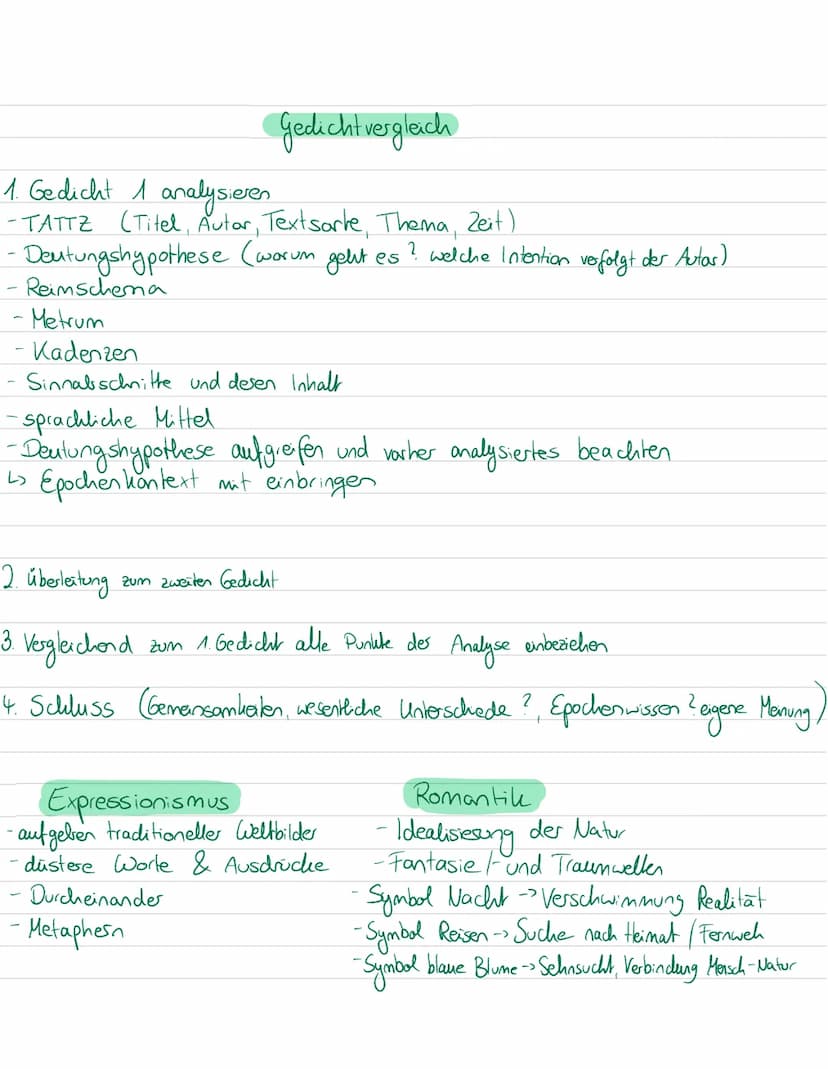 Gedichtvergleich
1. Gedicht 1 analysieren
- TATTZ (Titel, Autor, Textsorte, Thema, Zeit)
- Deutungshypothese (worum geht es? welche Intention verfolgt der Autor)
- Reimschema
- Metrum
- Kadenzen
- Sinnabschnitte und desen Inhalt
- sprachliche Mittel
- Deutungshypothese aufgreifen und vorher analysiertes beachten
↳ Epochenkontext mit einbringen
2. Überleitung zum zweiten Gedicht
3. Vergleichend zum 1. Gedicht alle Punkte der Analyse einbeziehen
4. Schluss (Gemeinsamkeiten, wesentliche Unterschede?, Epochenwissen? eigene Meinung)
Expressionismus
- aufgeben traditioneller Weltbilder
- düstere Worte & Ausdrücke
- Durcheinander
- Metaphern
Romantik
- Idealisierung der Natur
- Fantasie/- und Traumwelten
- Symbol Nacht -> Verschwimmung Realität
- Symbol Reisen -> Suche nach Heimat / Fernweh
- Symbol blaue Blume -> Sehnsucht, Verbindung Mensch-Natur